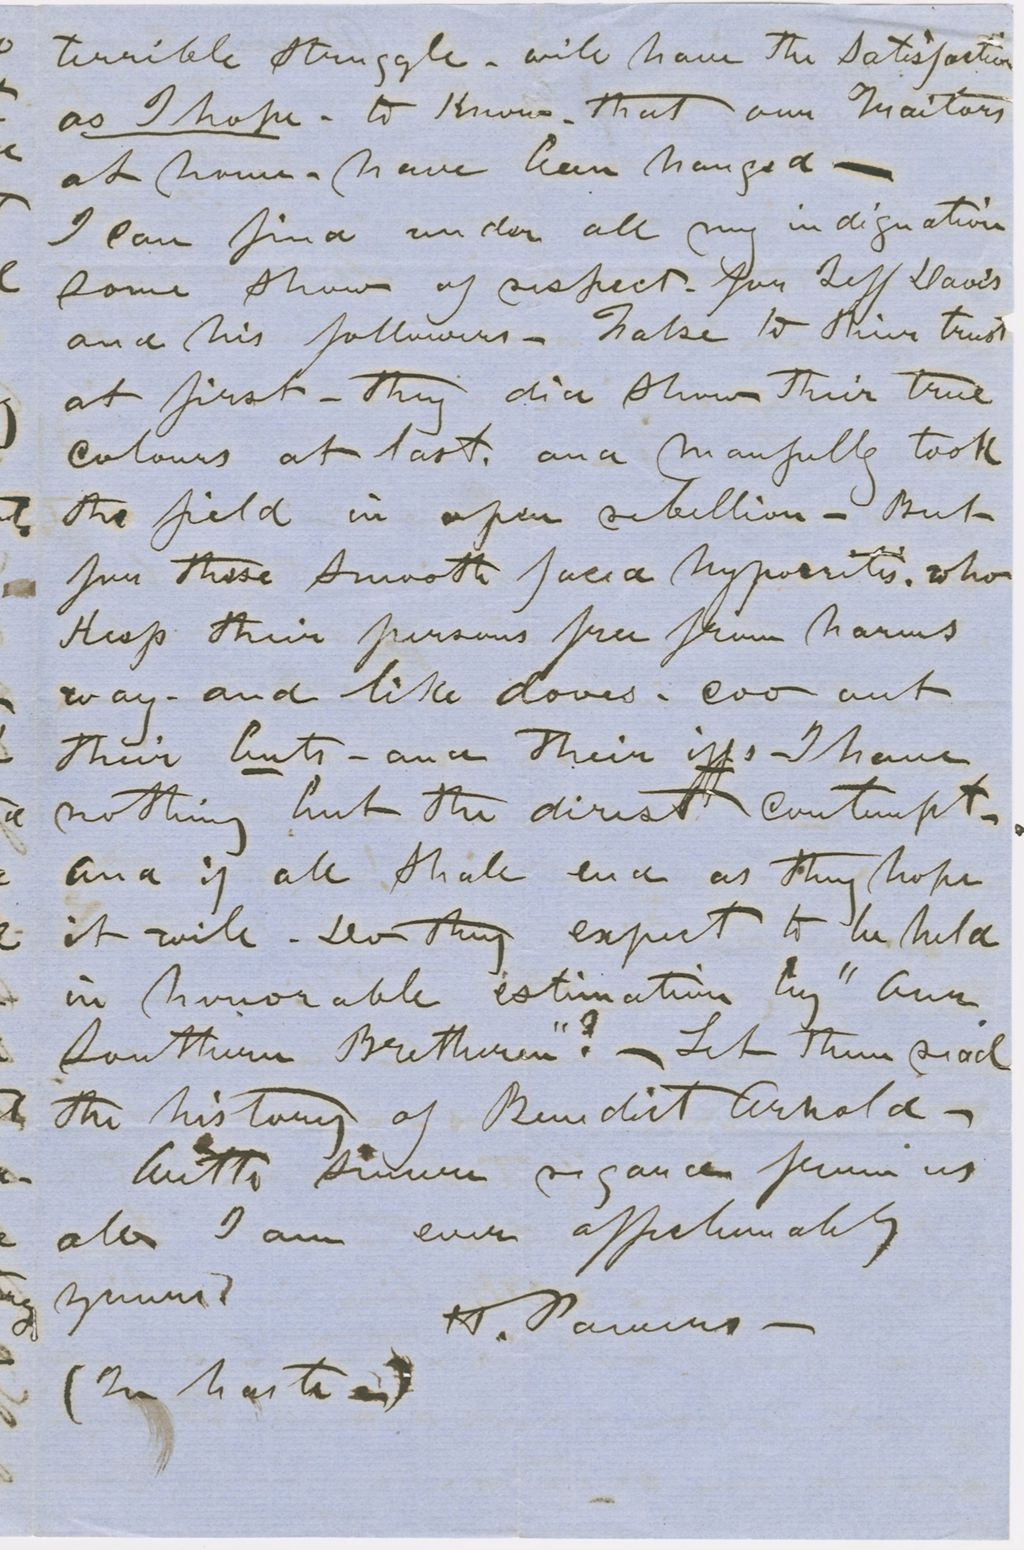 terrible struggle - will have the satisfaction
as I hope - to know - that our Traitors
at home - have been hanged —
I can find under all my indignation
some show of respect - for Jeff Davis
and his followers - False to their trust
at first - they did show their true
colours at last. and manfully took
the field in open rebellion - But
for these smooth faced hypocrites. who
keep their persons free from harms
way - and like doves - coo out
their buts - and their iffs - I have
nothing but the direst contempt -
and if all shall end as they hope
it will - Do they expect to be held
in honorable estimation by "our
Southern Brethren"? - Let them read
the history of Benedict Arnold -
With sincere regards from us
all I am ever affectionately
yours
H. Powers -
(In haste)